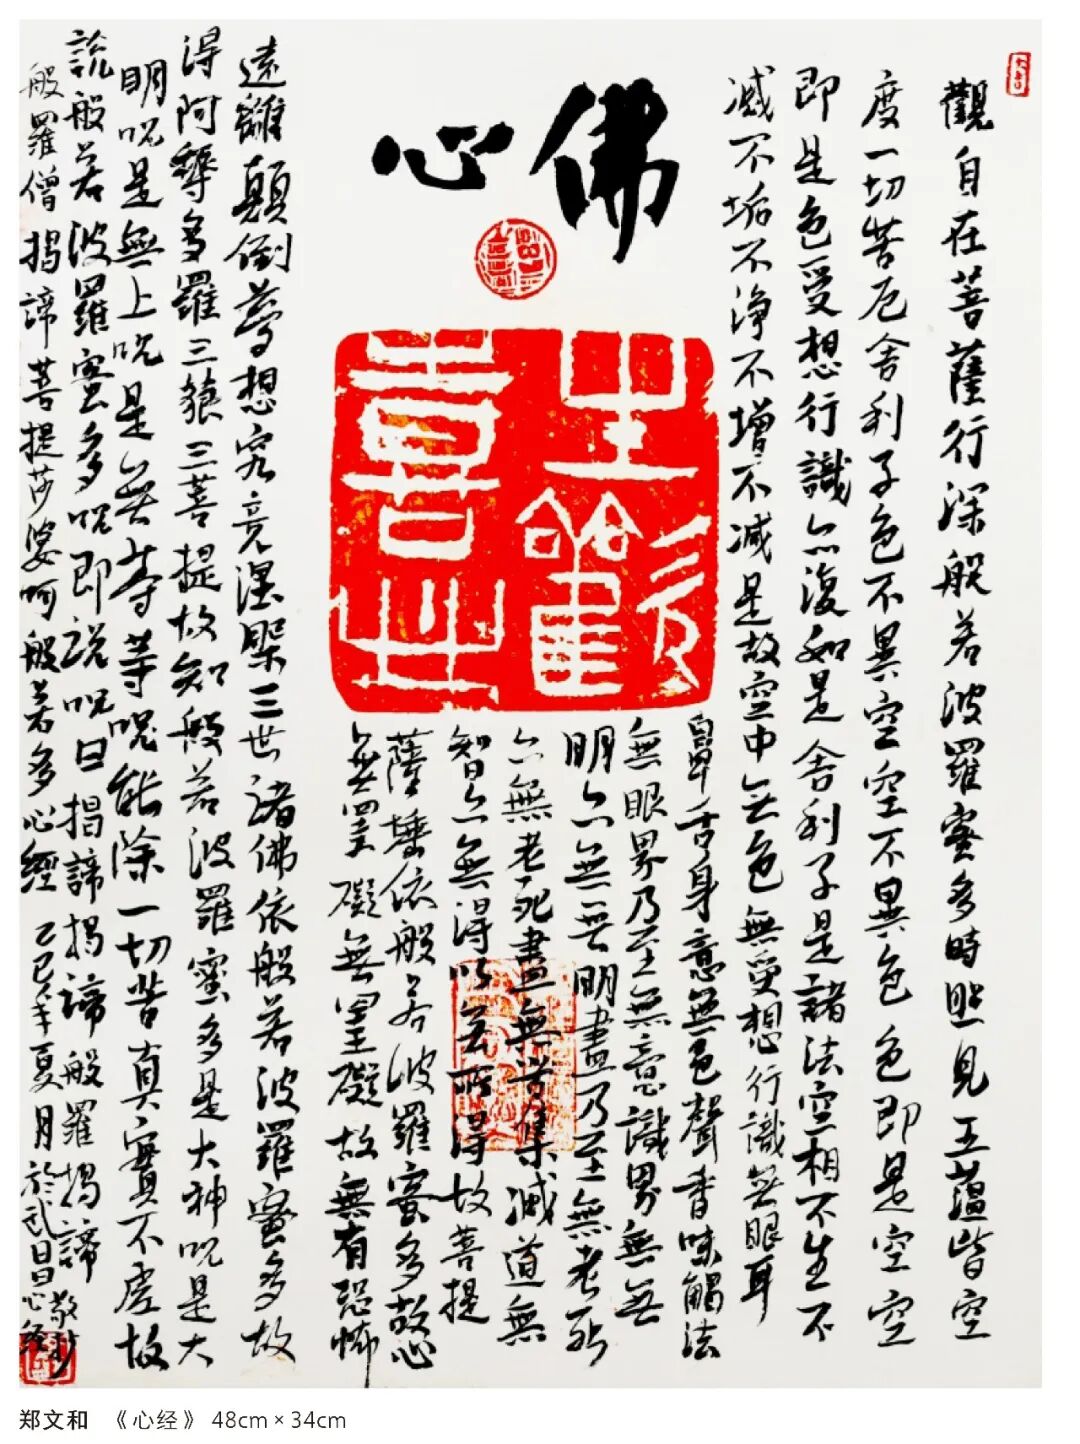 佛心
觀自在菩薩行深般若波羅蜜多時照見五蘊皆空
度一切苦厄舍利子色不異空空不異色色即是空空
即是色受想行識亦復如是舍利子是諸法空相不生不
滅不垢不淨不增不減是故空中无色無受想行識无眼耳
鼻舌身意無色聲香味觸法
無眼界乃至無意識界無无
明亦無无明盡乃至無老死
亦無老死盡無苦集滅道無
智亦無得以无所得故菩提
薩埵依般若波羅蜜多故心
无罣礙無罣礙故無有恐怖
遠離顛倒夢想究竟涅槃三世諸佛依般若波羅蜜多故
得阿耨多羅三藐三菩提故知般若波羅蜜多是大神呪是大
明呪是無上呪是无等等呪能除一切苦真實不虛故
說般若波羅蜜多呪即說呪曰揭諦揭諦般羅揭諦敬抄
般羅僧揭諦菩提莎婆呵般若多心經乙巳年夏月於武昌心經
郑文和 《心经》 48cm×34cm